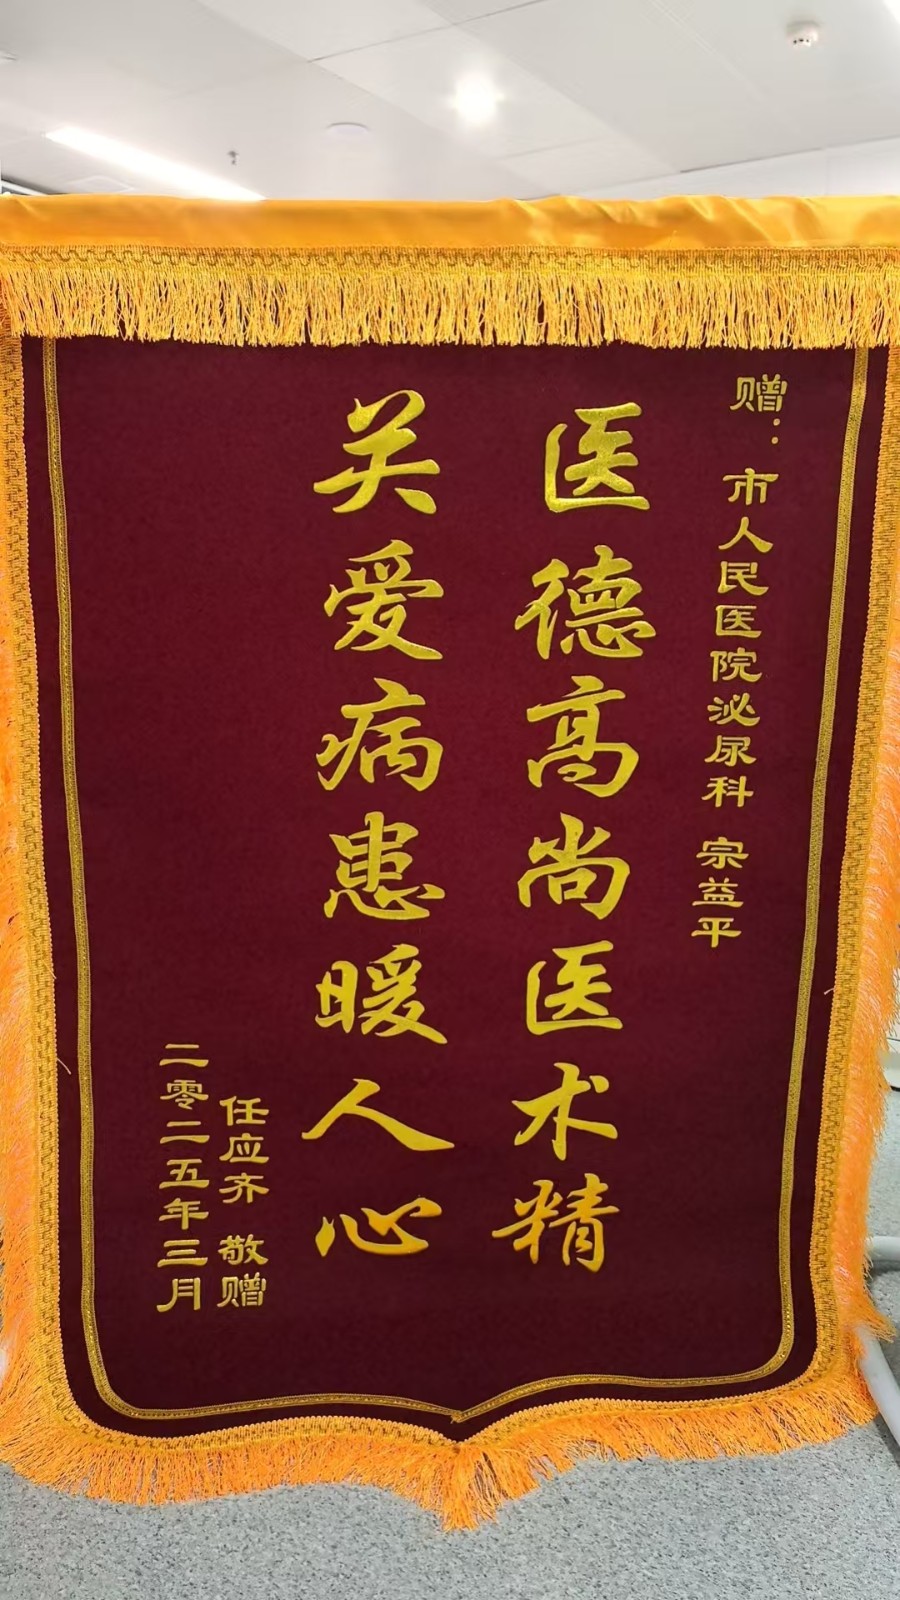 赠：市人民医院泌尿科 宗益平
医德高尚医术精
关爱病患暖人心
任应齐 敬赠
二零二五年三月